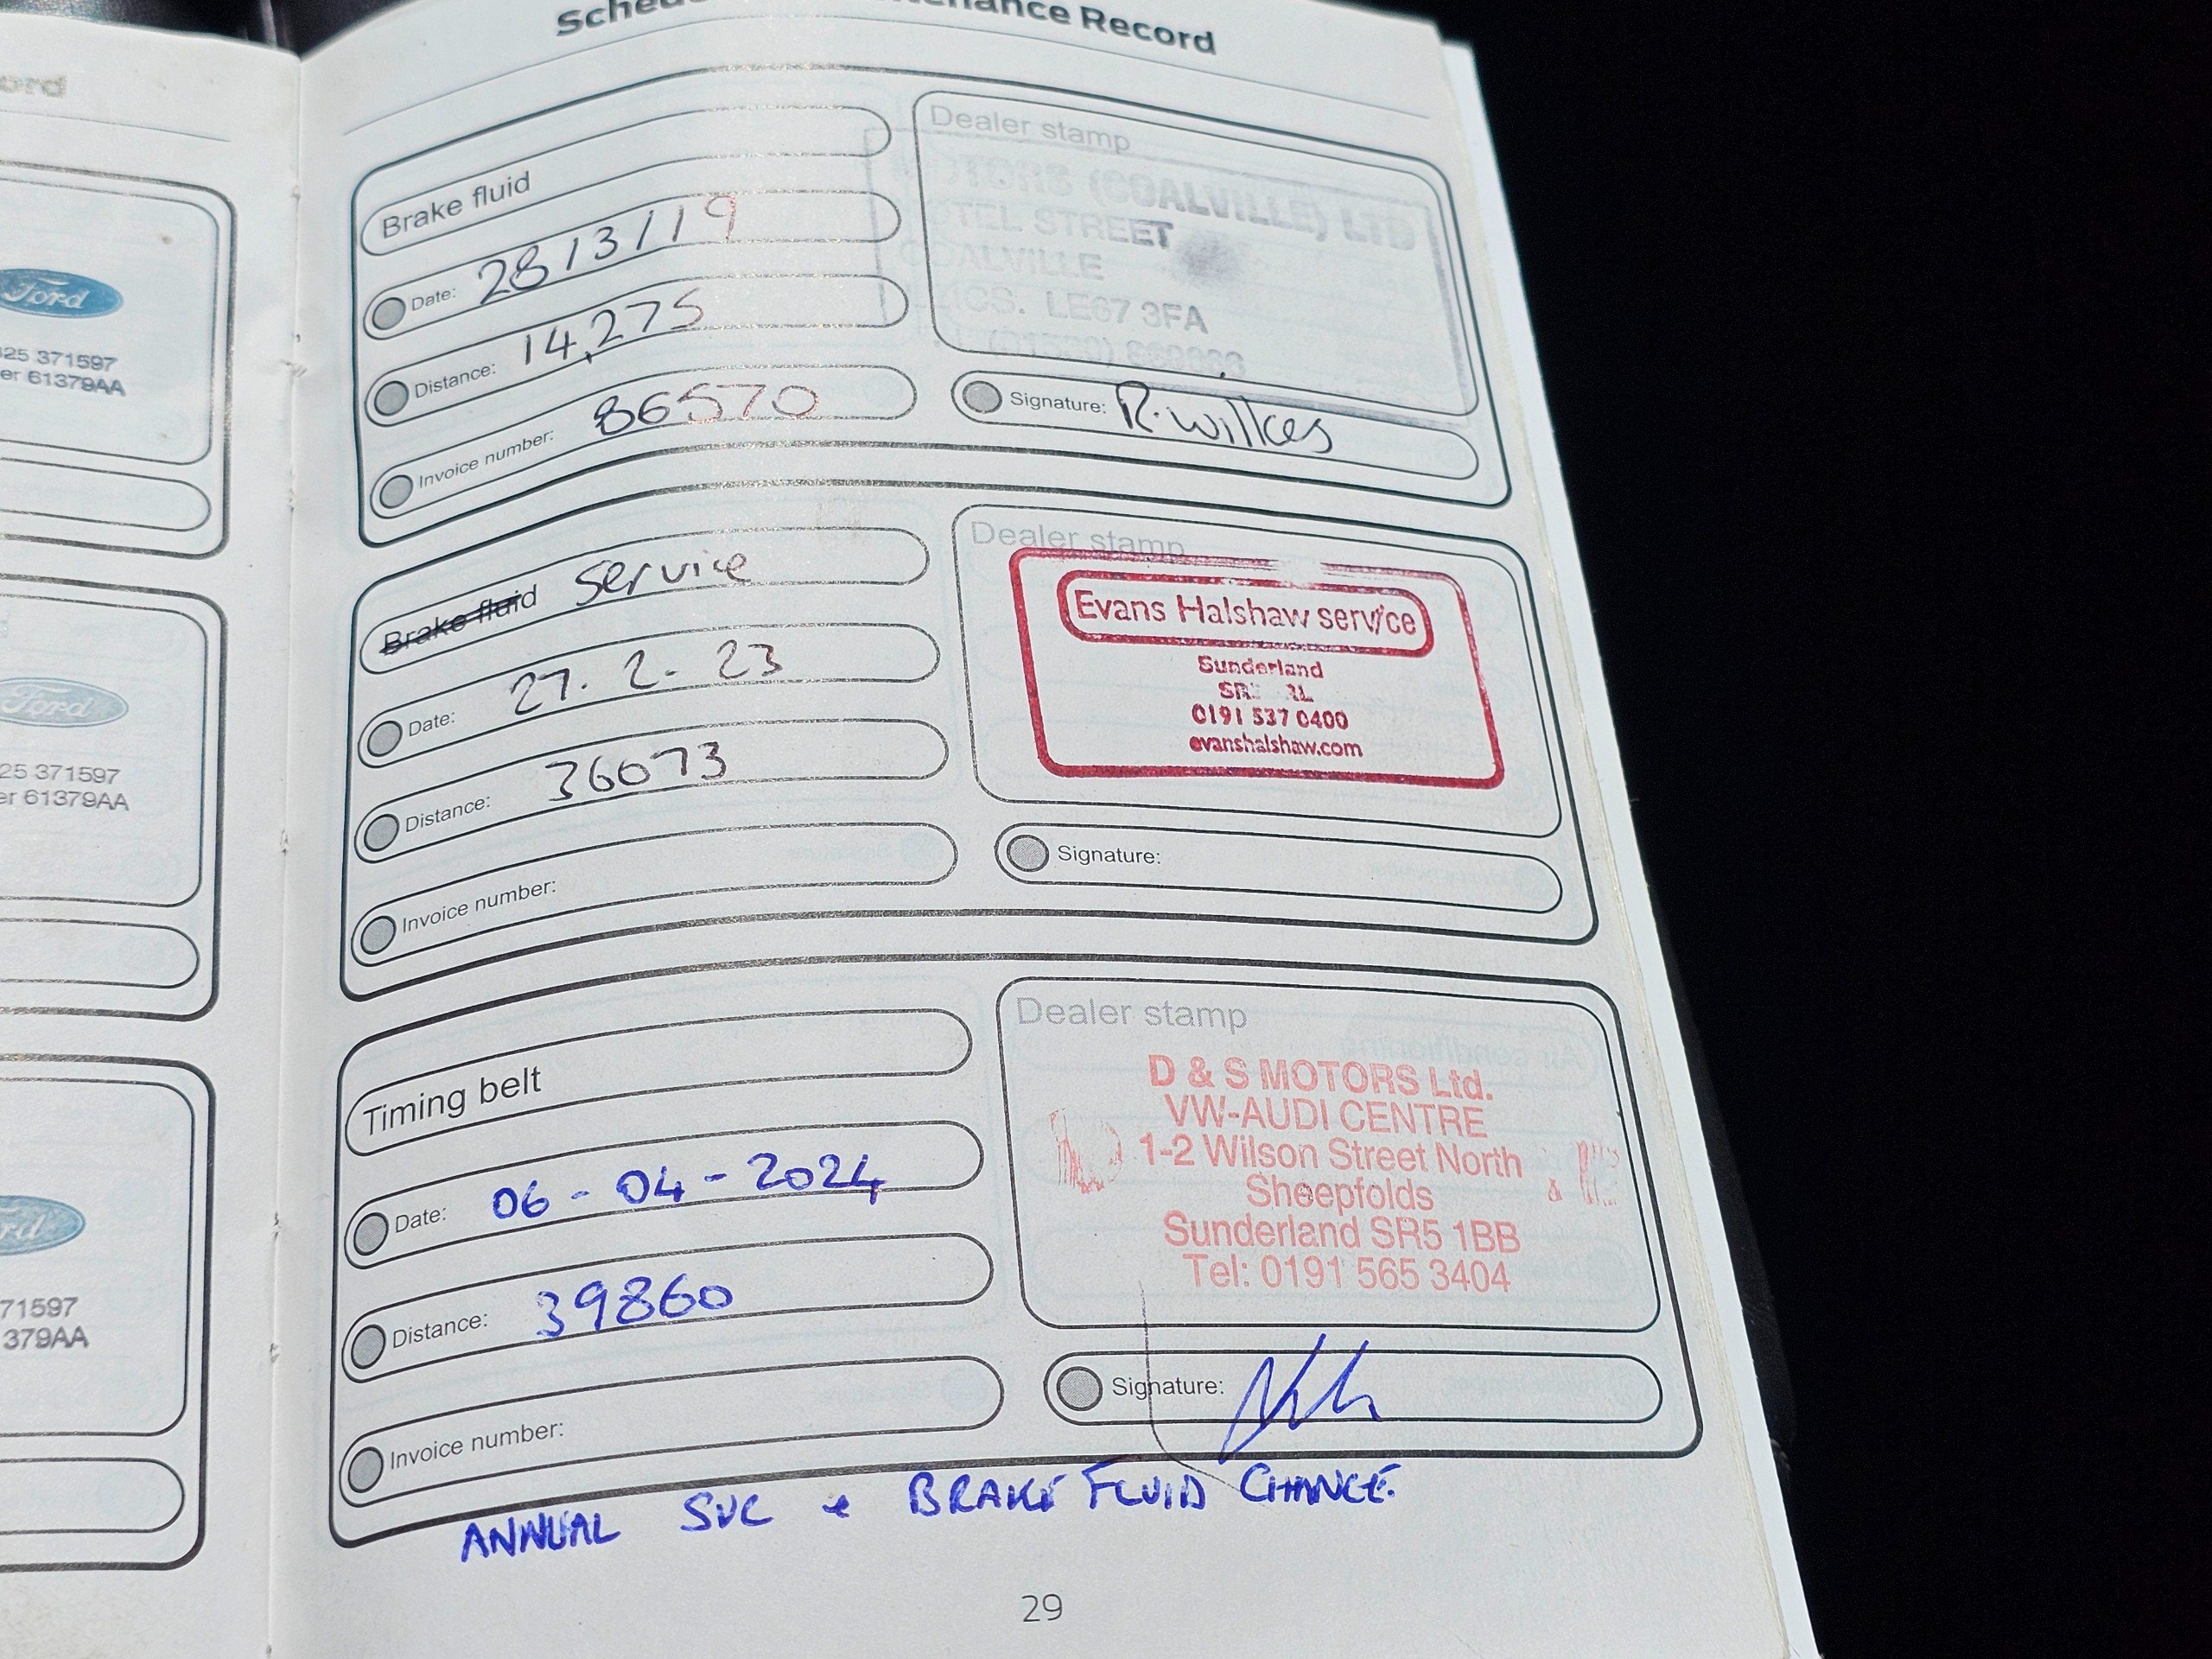 ord
Ford
25 371597
er 61379AA
Ford
25 371597
er 61379AA
rd
71597
379AA
Maintenance Record
Brake fluid
Date: 28/3/19
Distance: 14,275
Invoice number: 86570
Dealer stamp
TORS (COALVILLE) LTD
TEL STREET
COALVILLE
ICS. LE67 3FA
Signature: R. Wilkes
Brake fluid Service
Date: 27.2.23
Distance: 36073
Invoice number:
Dealer stamp
Evans Halshaw service
Sunderland
0191 537 0400
evanshalshaw.com
Signature:
Timing belt
Date: 06-04-2024
Distance: 39860
Invoice number:
Dealer stamp
D & S MOTORS Ltd.
VW-AUDI CENTRE
1-2 Wilson Street North
Sheepfolds
Sunderland SR5 1BB
Tel: 0191 565 3404
Signature:
ANNUAL SVC & BRAKE FLUID CHANGE.
29